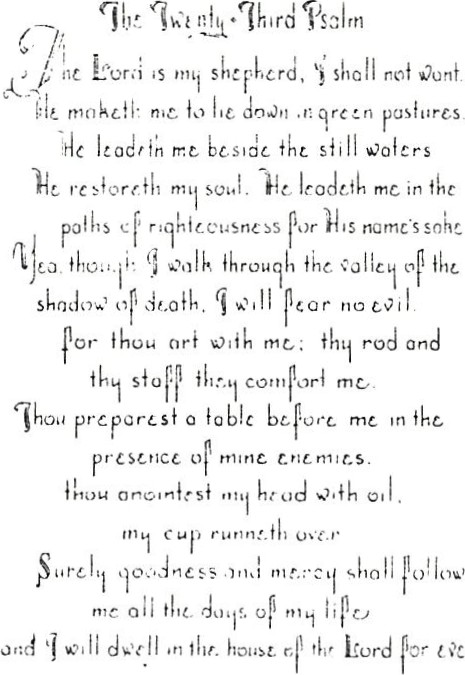 The Twenty-Third Psalm
The Lord is my shepherd, I shall not want.
He maketh me to lie down in green pastures.
He leadeth me beside the still waters
He restoreth my soul. He leadeth me in the
paths of righteousness for His name's sake
Yea, though I walk through the valley of the
shadow of death, I will fear no evil.
for thou art with me; thy rod and
thy staff they comfort me.
Thou preparest a table before me in the
presence of mine enemies.
thou anointest my head with oil,
my cup runneth over
Surely goodness and mercy shall follow
me all the days of my life
and I will dwell in the house of the Lord for eve